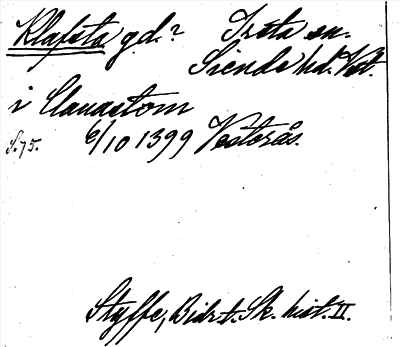 Klafsta g.d.? Irsta sn.
Siende hd. Vstm.
i Clauastom
S.75. 6/10 1399 Vesterås.
Styffe, Bidr. t. Sk. hist. II.